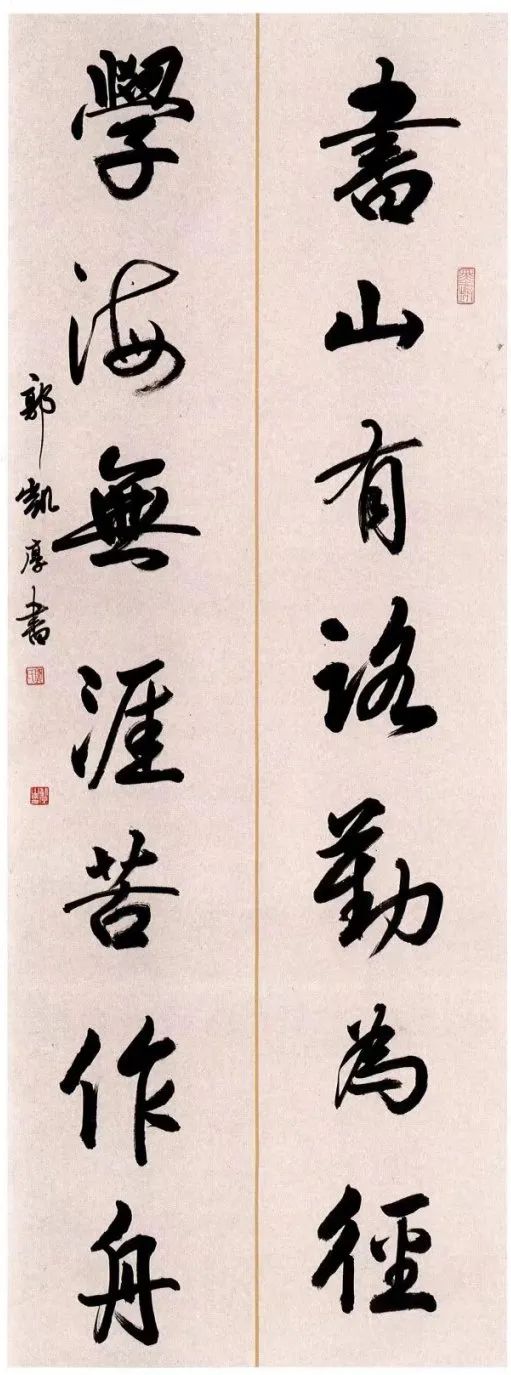 書山有路勤為徑
學海無涯苦作舟
郭凱厚書